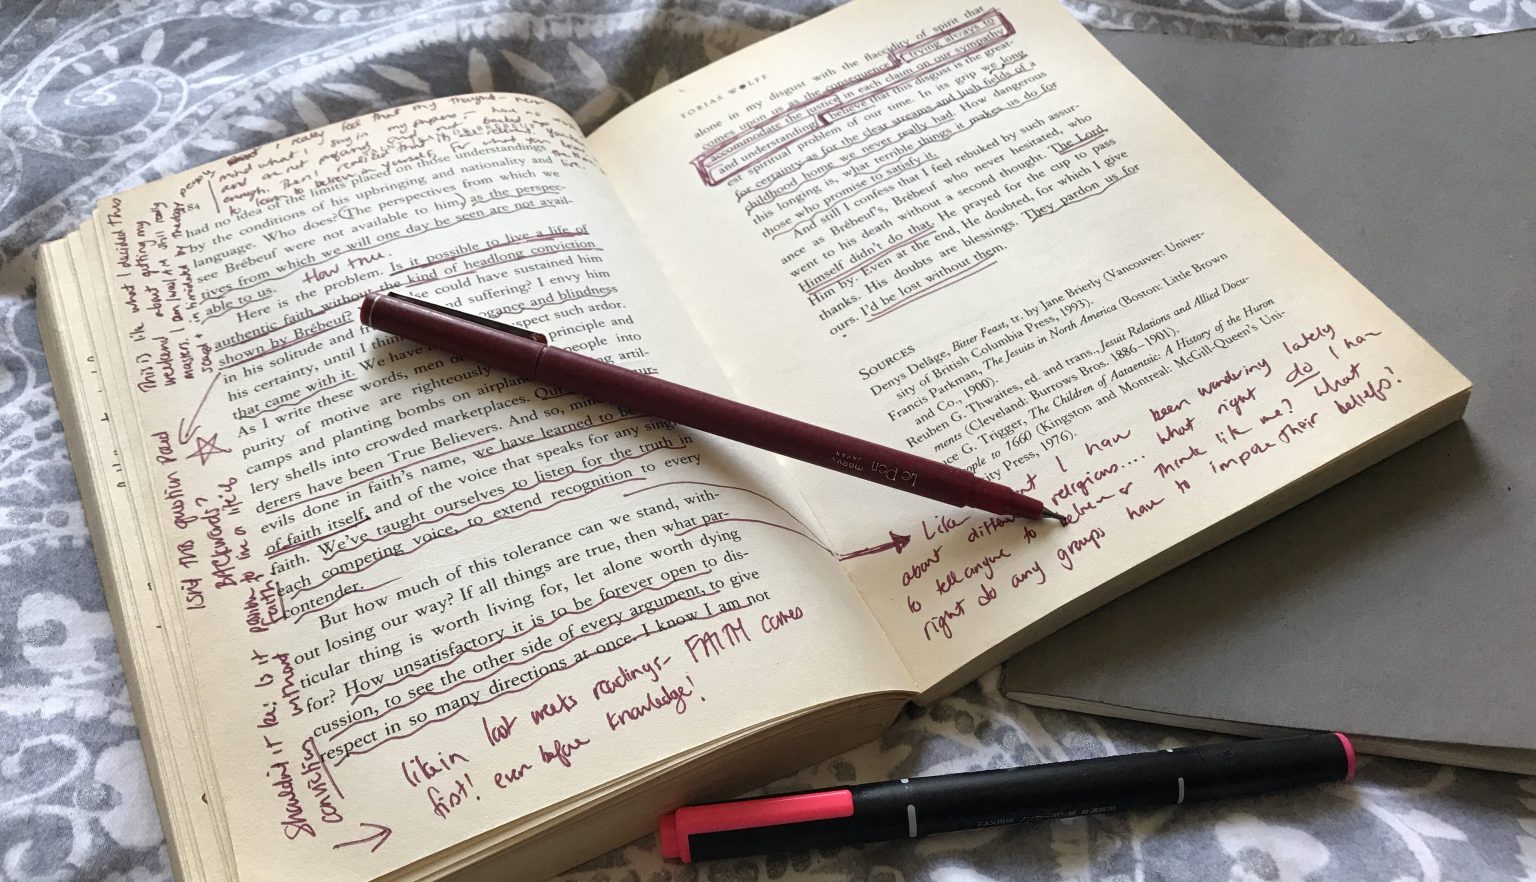 I really feel that my thought
what I say in my papers
and am not arguing
enough. Then I realized that
to learn to believe in myself. For what
84
had no idea of the limits placed on those understandings
by the conditions of his upbringing and nationality and
language. Who does? The perspectives from which we
see Brébeuf were not available to him, as the perspec-
tives from which we will one day be seen are not avail-
able to us.
How true.
Here is the problem. Is it possible to live a life of
authentic faith without the kind of headlong conviction
shown by Brébeuf? else could have sustained him
in his solitude and and suffering? I envy him
his certainty, until I ogance and blindness
that came with it. We have spect such ardor.
As I write these words, men principle and
purity of motive are righteously people into
camps and planting bombs on airplan artil-
lery shells into crowded marketplaces.
derers have been True Believers. And so,
evils done in faith's name, we have learned to be
of faith itself, and of the voice that speaks for any
faith. We've taught ourselves to listen for the truth in
each competing voice, to extend recognition to every
contender.
But how much of this tolerance can we stand, with-
out losing our way? If all things are true, then what par-
ticular thing is worth living for, let alone worth dying
for? How unsatisfactory it is to be forever open to dis-
cussion, to see the other side of every argument, to give
respect in so many directions at once. I know I am not
This is like what I decided this
weekend about getting my
masters. I am
scared + intimidated by theology
people
Isn't this question Posed
BACKwards?
Shouldn't it be: Is it
possible to live a life of
faith without
conviction
like in last weeks readings- FAITH comes
first! even before knowledge!
TOBIAS WOLFF
alone in my disgust with the flaccidity of spirit that
comes upon us as the consequence trying always to
accommodate the justice in each claim on our sympathy
and understanding. I believe that this disgust is the great-
est spiritual problem of our time. In its grip we long
for certainty as for the clear streams and lush fields of a
childhood home we never really had. How dangerous
this longing is, what terrible things it makes us do for
those who promise to satisfy it.
And still I confess that I feel rebuked by such assur-
ance as Brébeuf's, Brébeuf who never hesitated, who
went to his death without a second thought. The Lord
Himself didn't do that. He prayed for the cup to pass
Him by. Even at the end, He doubted, for which I give
thanks. His doubts are blessings. They pardon us for
ours. I'd be lost without them.
SOURCES
Denys Delâge, Bitter Feast, tr. by Jane Brierly (Vancouver: Univer-
sity of British Columbia Press, 1993).
Francis Parkman, The Jesuits in North America (Boston: Little Brown
and Co., 1900).
Reuben G. Thwaites, ed. and trans., Jesuit Relations and Allied Docu-
ments (Cleveland: Burrows Bros. 1886–1901).
ce G. Trigger, The Children of Aataentsic: A History of the Huron
eople to 1660 (Kingston and Montreal: McGill-Queen's Uni-
ity Press, 1976).
Like I have been wondering lately
about different religions.... what right do I have
to tell anyone to believe or think like me? What
right do any groups have to impose their beliefs?
Le Pen MARVY
JAPAN